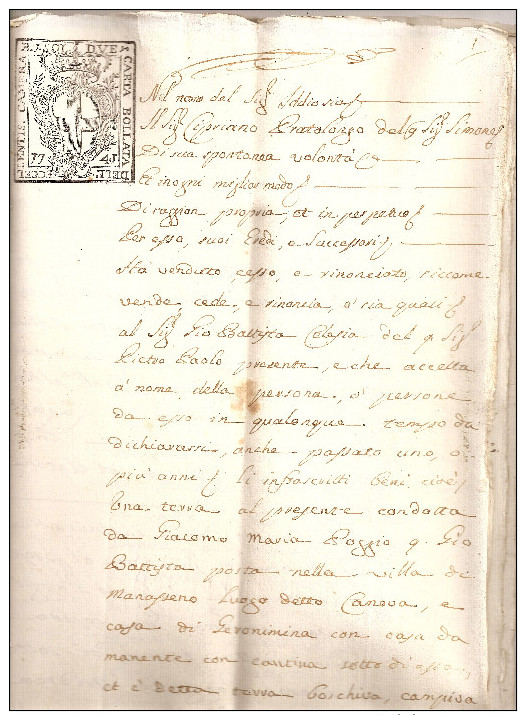 CARTA BOLLATA DELLE ECCELENTIS. CAMERA E.I. SOLI DUE
1741
Nel nome del Sig.r Iddio sia
Il Sig.r Cipriano Pratolongo del q. Sig.r Simone
Di sua spontanea volontà
Et in ogni miglior modo
Di raggion propria, et in perpetuo
Per esso, suoi Eredi, e Successori
Hà venduto, cesso, e rinonciato, siccome
vende cede, e rinoncia, ò sia quasi
al Sig.r Gio Battista Celesia del q. Sig.r
Pietro Paolo presente, e che accetta
à nome della persona, ò persone
da esso in qualonque tempo da
dichiararsi, anche passato uno, o
più anni li infrascritti beni cioè
Una terra al presente condotta
da Giacomo Maria Poggio q. Gio
Battista posta nella villa di
Manasseno luogo detto Canova, e
casa di Geronimina con casa da
manente con cantina sotto di essa,
et è detta terra boschiva, campiva